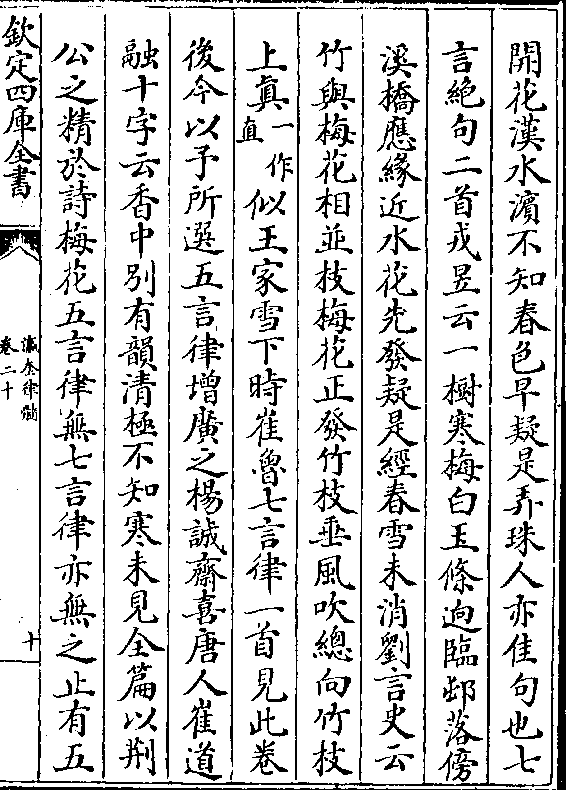 開花漢水濵不知春色早疑是弄珠人亦佳句也七
言絶句二首戎昱云一樹寒梅白玉條迥臨邨落傍
溪橋應緣近水花先發疑是經春雪未消劉言史云
竹與梅花相並枝梅花正發竹枝垂風吹總向竹枝
上眞一作直似王家雪下時崔魯七言律一首見此卷
後今以予所選五言律增廣之楊誠齋喜唐人崔道
融十字云香中别有韻清極不知寒未見全篇以荆
公之精於詩梅花五言律無七言律亦無之止有五
欽定四庫全書
瀛奎律髓
卷二十
十